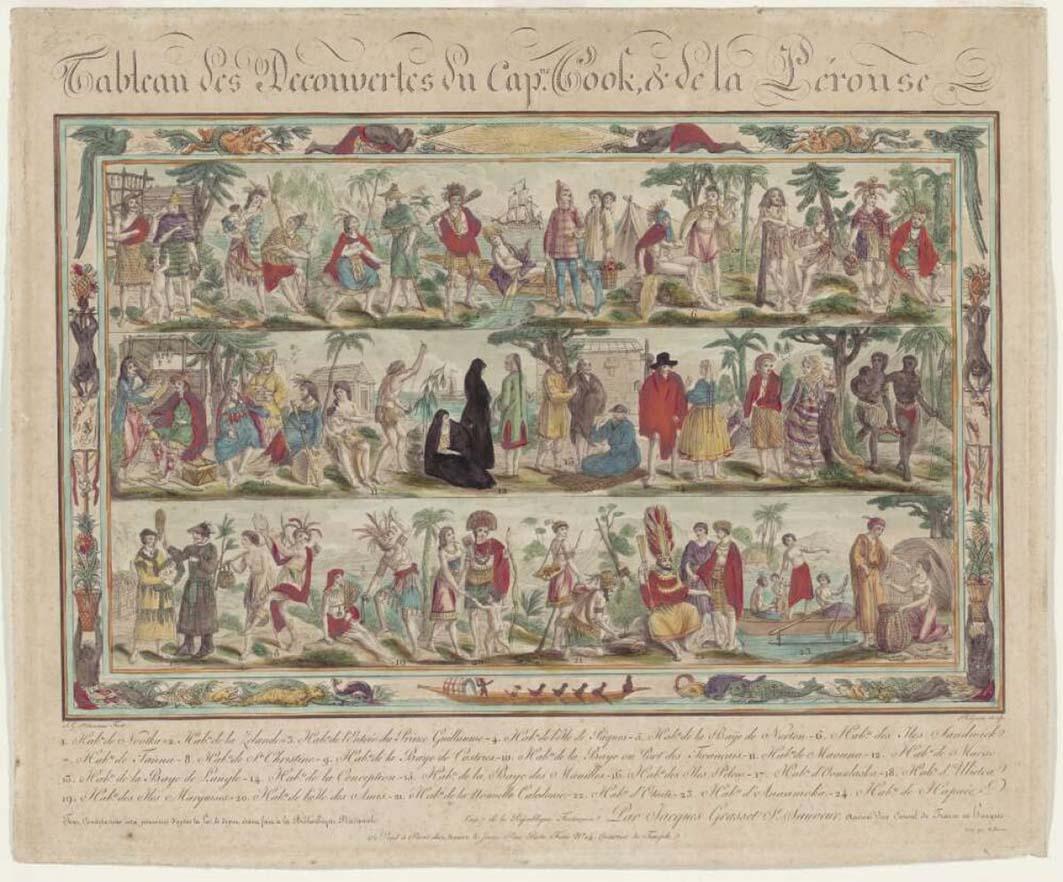 Tableau des Decouvertes du Cap.ne Cook, & de la Pérouse
1. Hab.s de Nootka 2. Hab.s de la Zélande 3. Hab.s de l'Entrée du Prince Guillaume 4. Hab.s de l'Ile de Pâques 5. Hab.s de la Baye de Norton 6. Hab.s des Iles Sandwick
7. Hab.s de Tanna 8. Hab.s de S.te Christine 9. Hab.s de la Baye de Castries 10. Hab.s de la Baye ou Port des Français 11. Hab.s de Maouna 12. Hab.s de Macao
13. Hab.s de la Baye de Langle 14. Hab.s de la Conception 15. Hab.s de la Baye des Manilles 16. Hab.s des Iles Pelew 17. Hab.s d'Oonolaska 18. Hab.s d'Ulietea
19. Hab.s des Iles Marquises 20. Hab.s de l'Ile des Amis 21. Hab.s de la Nouvelle Caledonie 22. Hab.s d'Otaiti 23. Hab.s d'Anamooka 24. Hab.s de Hapaée
de la République Par Jacques Grasset S.t Sauveur, Ancien Vice Consul de France en Hongrie
à Paris